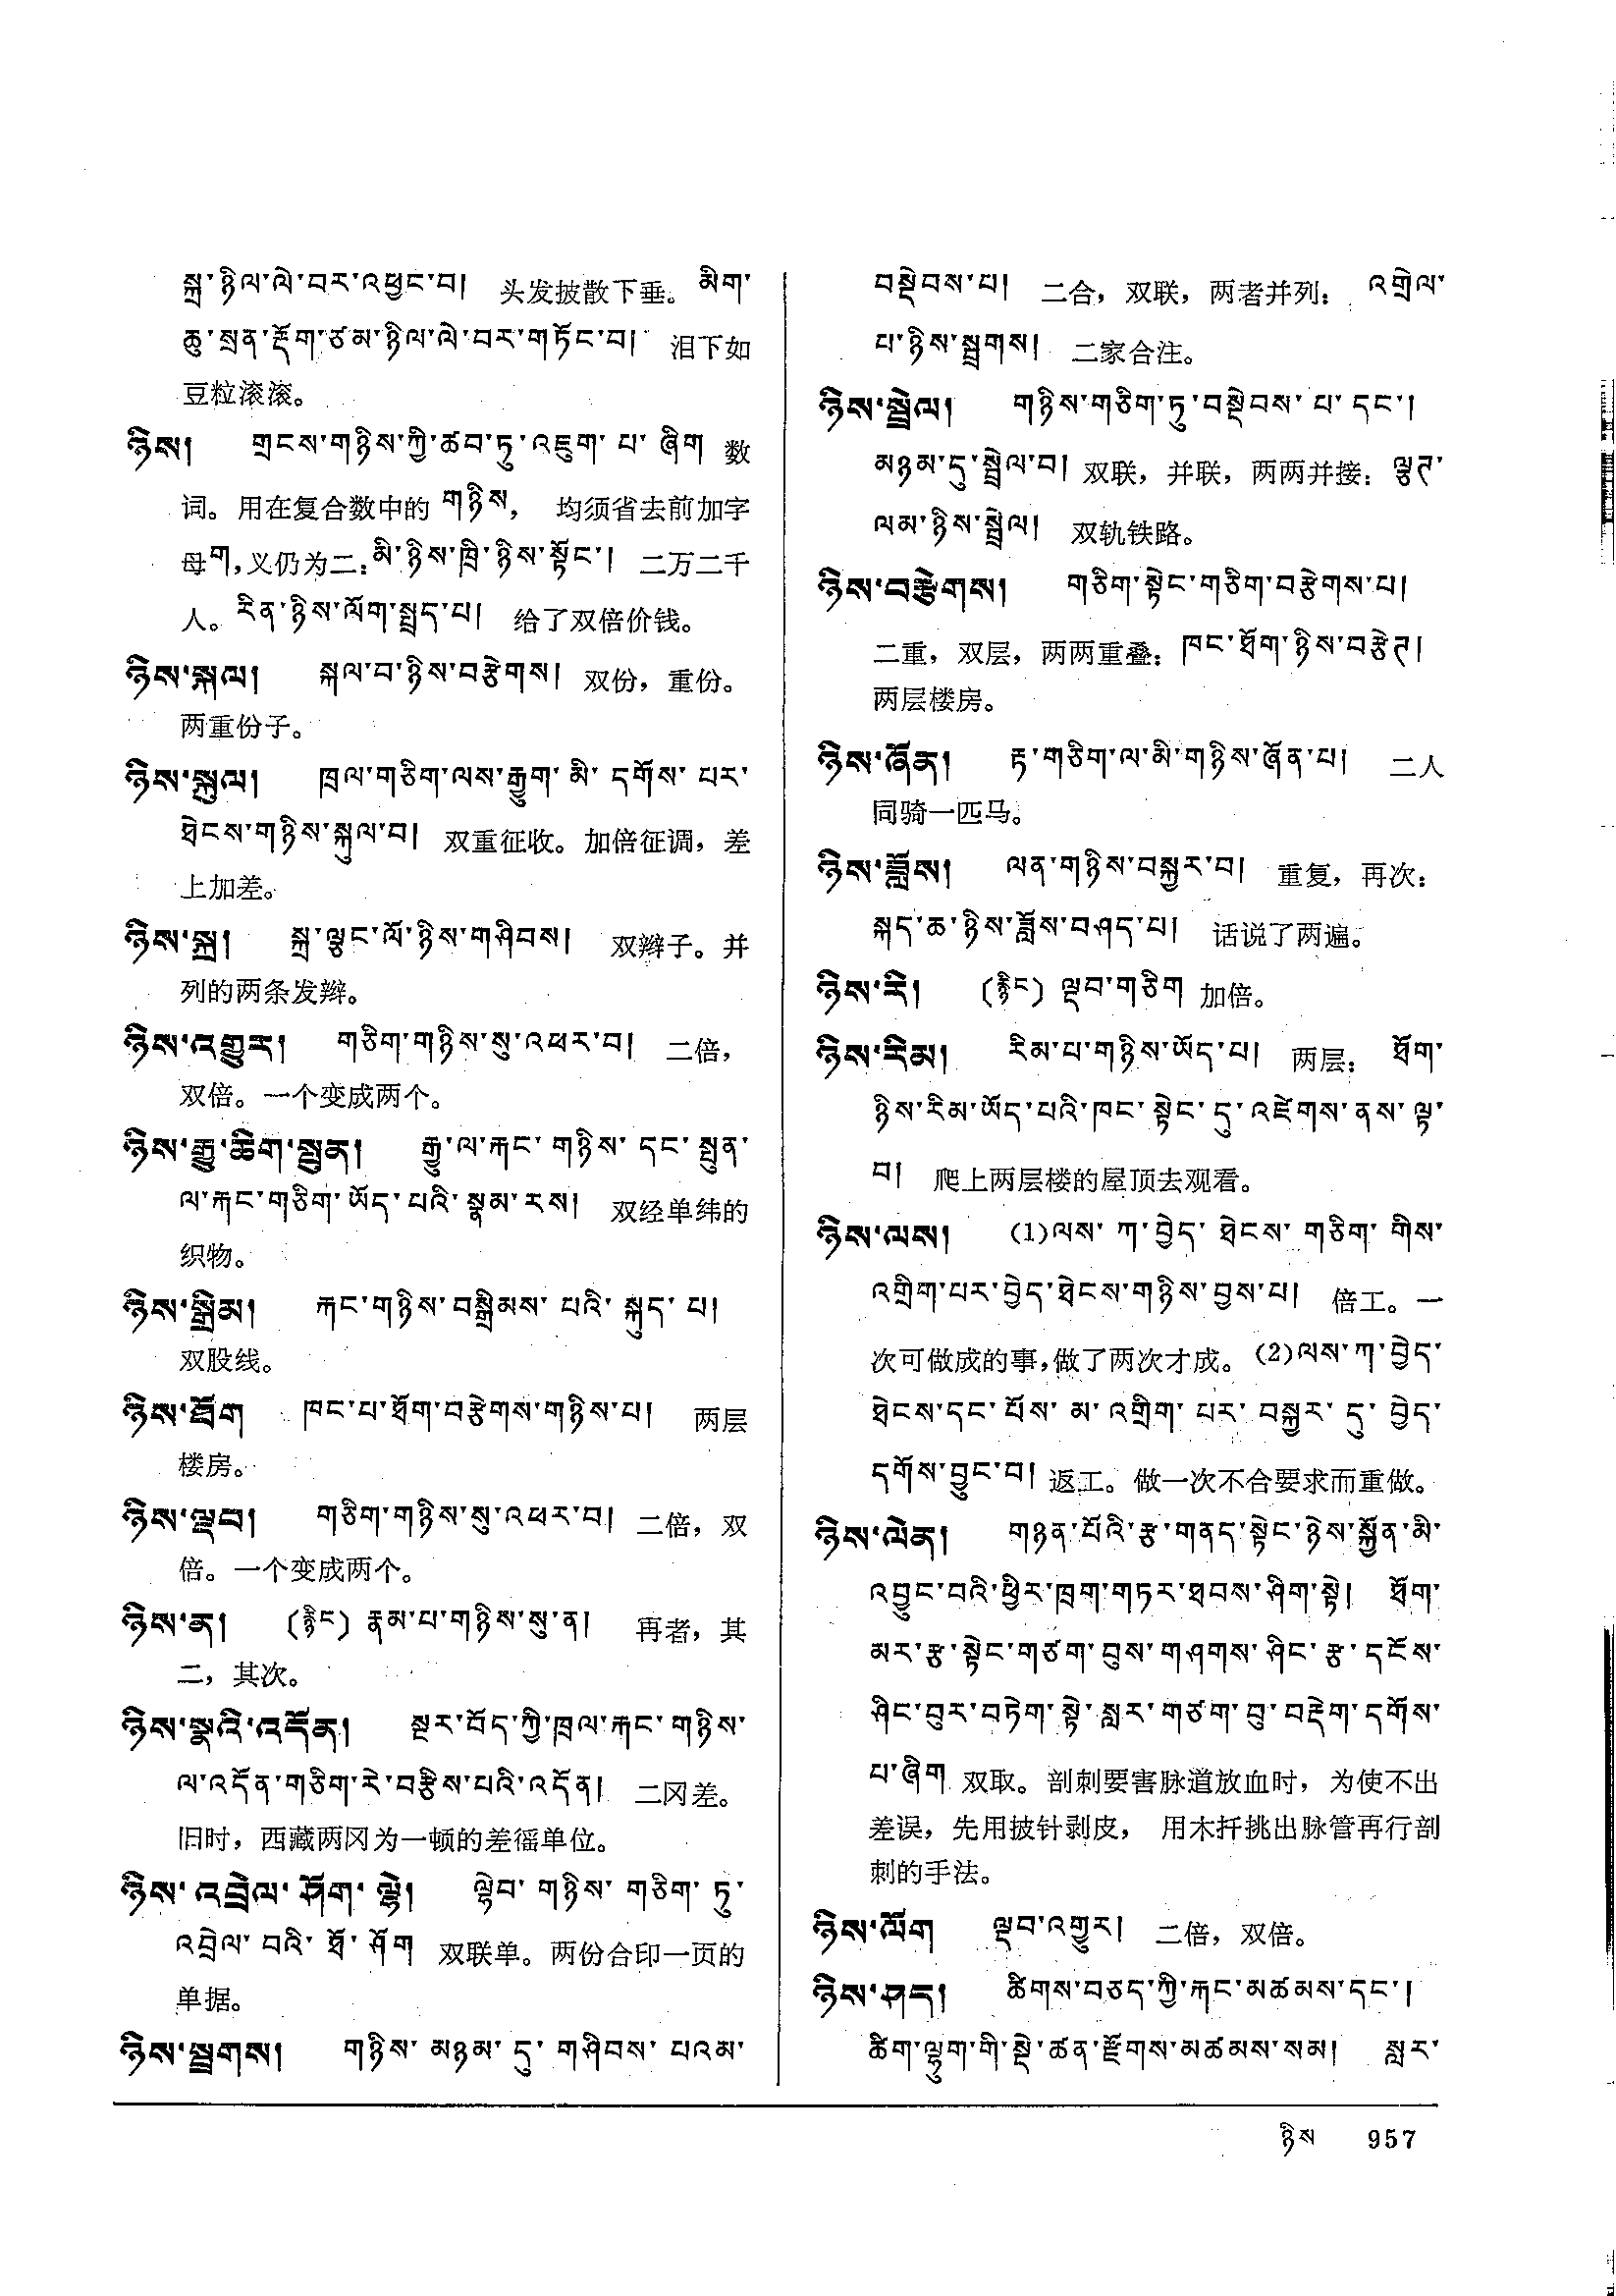 སྐྲ་ཉིལ་ལེ་བར་འཕྱང་བ། 头发披散下垂。 མིག་
ཆུ་སྲན་རྡོག་ཙམ་ཉིལ་ལེ་བར་གཏོང་བ། 泪下如
豆粒滚滚。
ཉིས། གྲངས་གཉིས་ཀྱི་ཚབ་ཏུ་འཇུག་པ་ཞིག 数
词。用在复合数中的 གཉིས, 均须省去前加字
母ག,义仍为二:མི་ཉིས་ཁྲི་ཉིས་སྟོང་། 二万二千
人。རིན་ཉིས་ལོག་སྤྲད་པ། 给了双倍价钱。
ཉིས་སྐལ། སྐལ་བ་ཉིས་བརྩེགས། 双份，重份。
两重份子。
ཉིས་སྐུལ། ཁྲལ་གཅིག་ལས་རྒྱུག་མི་དགོས་པར་
ཐེངས་གཉིས་སྐུལ་བ། 双重征收。加倍征调，差
上加差。
ཉིས་སྐྲ། སྐྲ་ལྕང་ལོ་ཉིས་གཤིབས། 双辫子。并
列的两条发辫。
ཉིས་འགྱུར། གཅིག་གཉིས་སུ་འཕར་བ། 二倍，
双倍。一个变成两个。
ཉིས་རྒྱུ་ཆིག་སྤུན། རྒྱུ་ལ་རྐང་གཉིས་དང་སྤུན་
ལ་རྐང་གཅིག་ཡོད་པའི་སྣམ་རས། 双经单纬的
织物。
ཉིས་སྒྲིམ། རྐང་གཉིས་བསྒྲིམས་པའི་སྐུད་པ།
双股线。
ཉིས་ཐོག ཁང་པ་ཐོག་བརྩེགས་གཉིས་པ། 两层
楼房。
ཉིས་ལྡབ། གཅིག་གཉིས་སུ་འཕར་བ། 二倍，双
倍。一个变成两个。
ཉིས་ན། (རྙིང) རྣམ་པ་གཉིས་སུ་ན། 再者，其
二，其次。
ཉིས་སྣའི་འདོན། སྔར་བོད་ཀྱི་ཁྲལ་རྐང་གཉིས་
ལ་འདོན་གཅིག་རེ་བརྩིས་པའི་འདོན། 二冈差。
旧时，西藏两冈为一顿的差徭单位。
ཉིས་འབྲེལ་ཤོག་ལྷེ། ལྷེབ་གཉིས་གཅིག་ཏུ་
འབྲེལ་བའི་ཐོ་ཤོག 双联单。两份合印一页的
单据。
ཉིས་སྦྲགས། གཉིས་མཉམ་དུ་གཤིབས་པའམ་
བསྡེབས་པ། 二合，双联，两者并列: འགྲེལ་
པ་ཉིས་སྦྲགས། 二家合注。
ཉིས་སྦྲེལ། གཉིས་གཅིག་ཏུ་བསྡེབས་པ་དང་།
མཉམ་དུ་སྦྲེལ་བ། 双联，并联，两两并接: ལྕགས་
ལམ་ཉིས་སྦྲེལ། 双轨铁路。
ཉིས་བརྩེགས། གཅིག་སྟེང་གཅིག་བརྩེགས་པ།
二重，双层，两两重叠: ཁང་ཐོག་ཉིས་བརྩེགས།
两层楼房。
ཉིས་ཞོན། རྟ་གཅིག་ལ་མི་གཉིས་ཞོན་པ། 二人
同骑一匹马。
ཉིས་ཟློས། ལན་གཉིས་བསྐྱར་བ། 重复，再次:
སྐད་ཆ་ཉིས་ཟློས་བཤད་པ། 话说了两遍。
ཉིས་རི། (རྙིང) ལྡབ་གཅིག 加倍。
ཉིས་རིམ། རིམ་པ་གཉིས་ཡོད་པ། 两层: ཐོག་
ཉིས་རིམ་ཡོད་པའི་ཁང་སྟེང་དུ་འཛེགས་ནས་ལྟ་
བ། 爬上两层楼的屋顶去观看。
ཉིས་ལས། (1)ལས་ཀ་བྱེད་ཐེངས་གཅིག་གིས་
འགྲིག་པར་བྱེད་ཐེངས་གཉིས་བྱས་པ། 倍工。一
次可做成的事,做了两次才成。(2)ལས་ཀ་བྱེད་
ཐེངས་དང་པོས་མ་འགྲིག་པར་བསྐྱར་དུ་བྱེད་
དགོས་བྱུང་བ། 返工。做一次不合要求而重做。
ཉིས་ལེན། གཉན་པོའི་རྩ་གནད་སྟེང་ཉེས་སྐྱོན་མི་
འབྱུང་བའི་ཕྱིར་ཁྲག་གཏར་ཐབས་ཤིག་སྟེ། ཐོག་
མར་རྩ་སྟེང་གཙག་བུས་གཤགས་ཤིང་རྩ་དངོས་
ཤིང་བུར་བཏེག་སྟེ་སླར་གཙག་བུ་བརྡེག་དགོས་
པ་ཞིག 双取。剖刺要害脉道放血时，为使不出
差误，先用披针剥皮， 用木扦挑出脉管再行剖
刺的手法。
ཉིས་ལོག ལྡབ་འགྱུར། 二倍，双倍。
ཉིས་ཤད། ཚིགས་བཅད་ཀྱི་རྐང་མཚམས་དང་།
ཚིག་ལྷུག་གི་སྡེ་ཚན་རྫོགས་མཚམས་སམ། སླར་
ཉིས 957